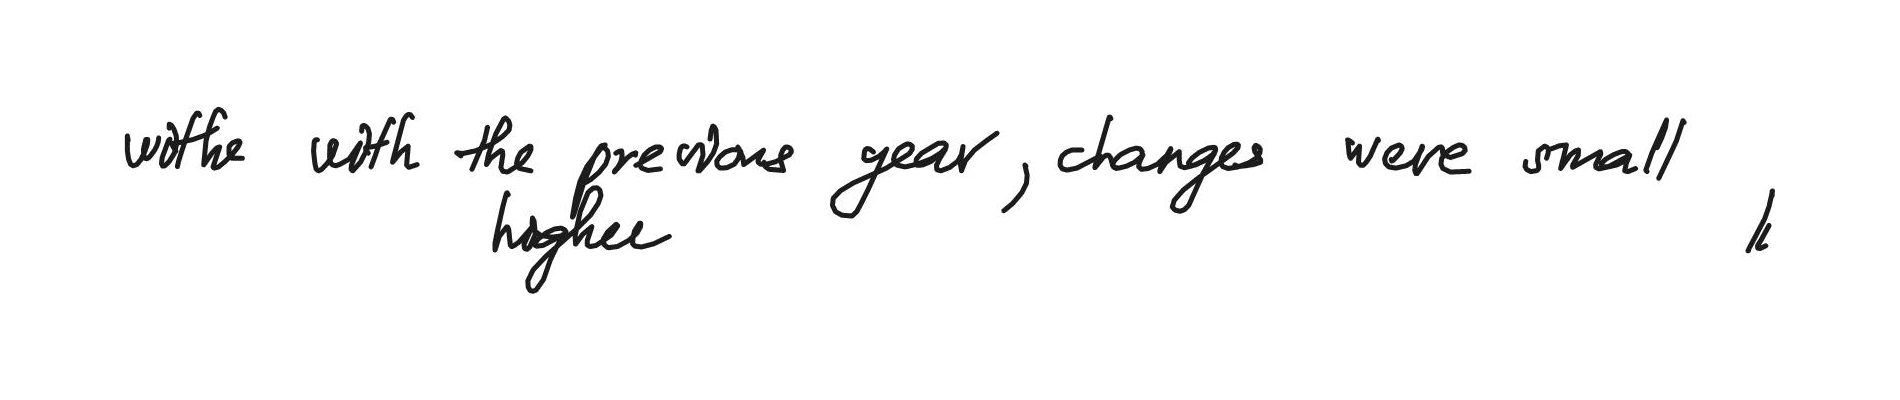 withe with the previous year, changes were small
higher